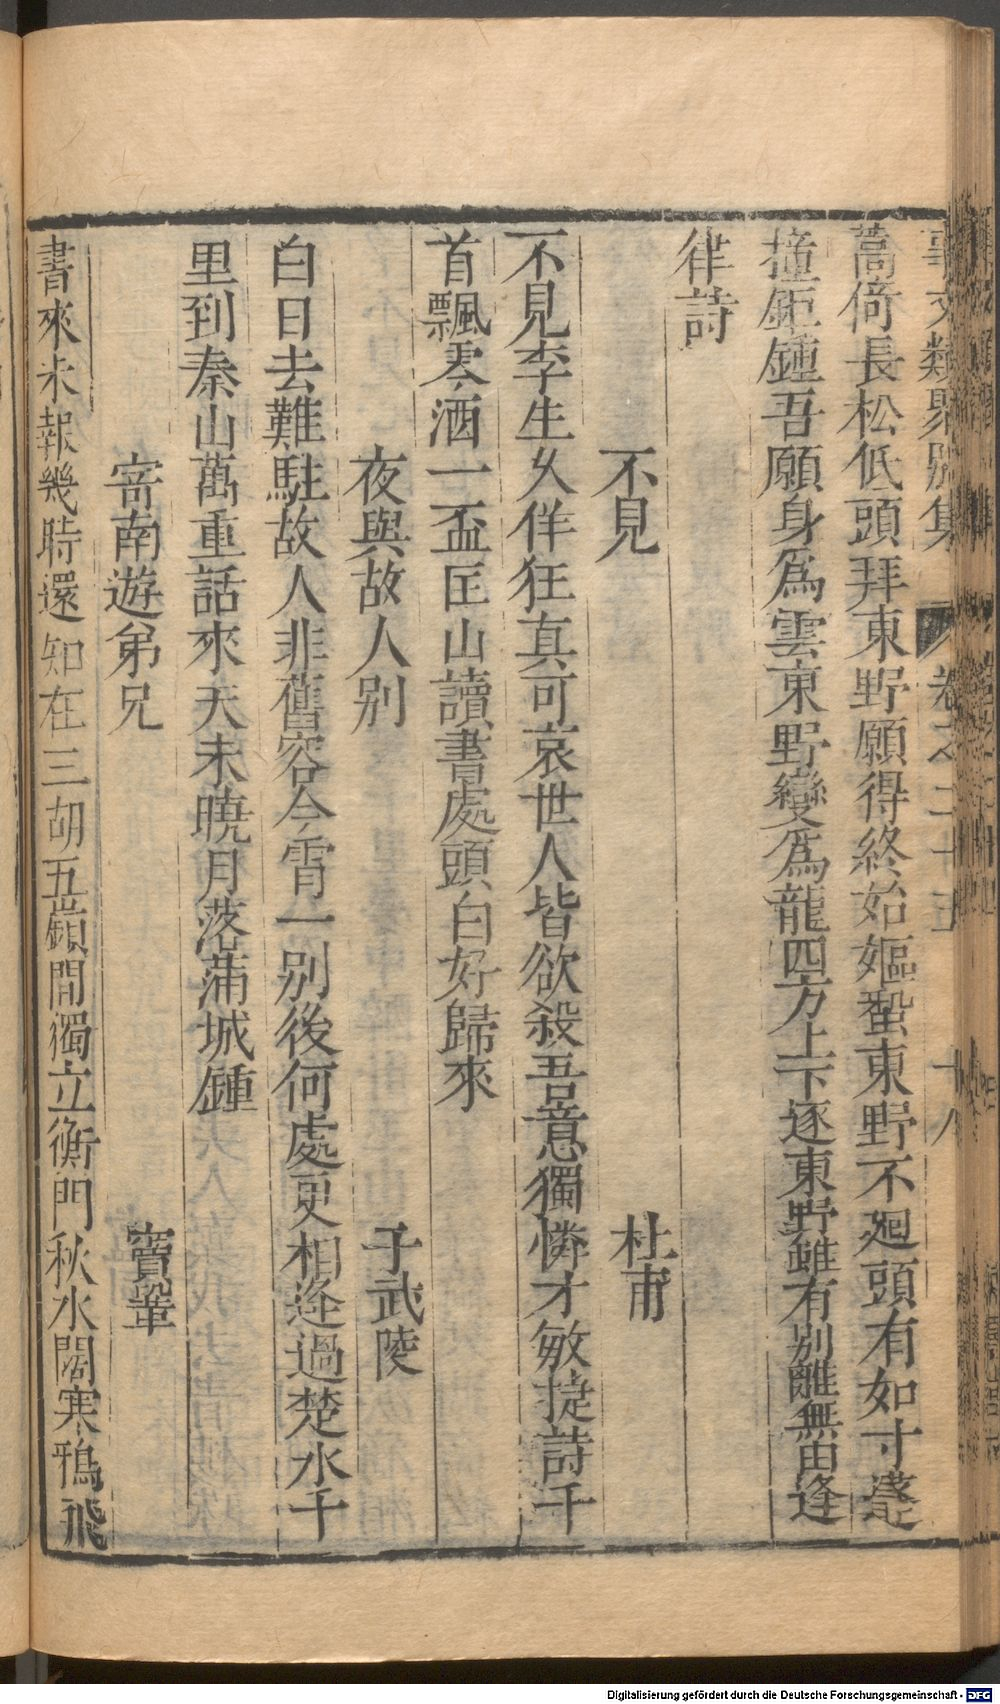 事文類聚別集 卷之二十五 十八
蒿倚長松低頭拜東野願得終始如駏蛩東野不廻頭有如寸莛
撞鉅鍾吾願身爲雲東野變爲龍四方上下逐東野雖有別離無由逢
律詩
不見 杜甫
不見李生久佯狂真可哀世人皆欲殺吾意獨憐才敏捷詩千
首飄零酒一盃匡山讀書處頭白好歸來
夜與故人別 于武陵
白日去難駐故人非舊容今宵一別後何處更相逢過楚水千
里到秦山萬重話來天未曉月落滿城鍾
寄南遊弟兄 竇鞏
書來未報幾時還知在三胡五嶺間獨立衡門秋水闊寒鴉飛
Digitalisierung gefördert durch die Deutsche Forschungsgemeinschaft - DFG